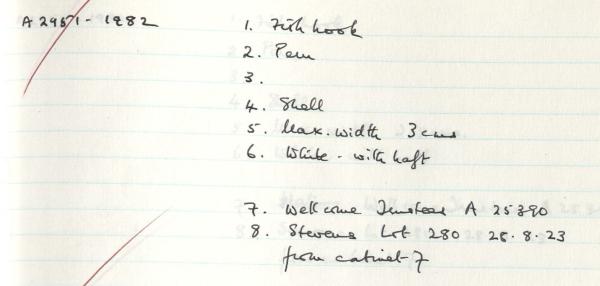 A 2951-1982
1. Fish hook
2. Peru
3.
4. Shell
5. Max. width 3 cms
6. White - with haft
7. Wellcome Trustees A 25390
8. Stevens Lot 280 28.8.23
from cabinet 7